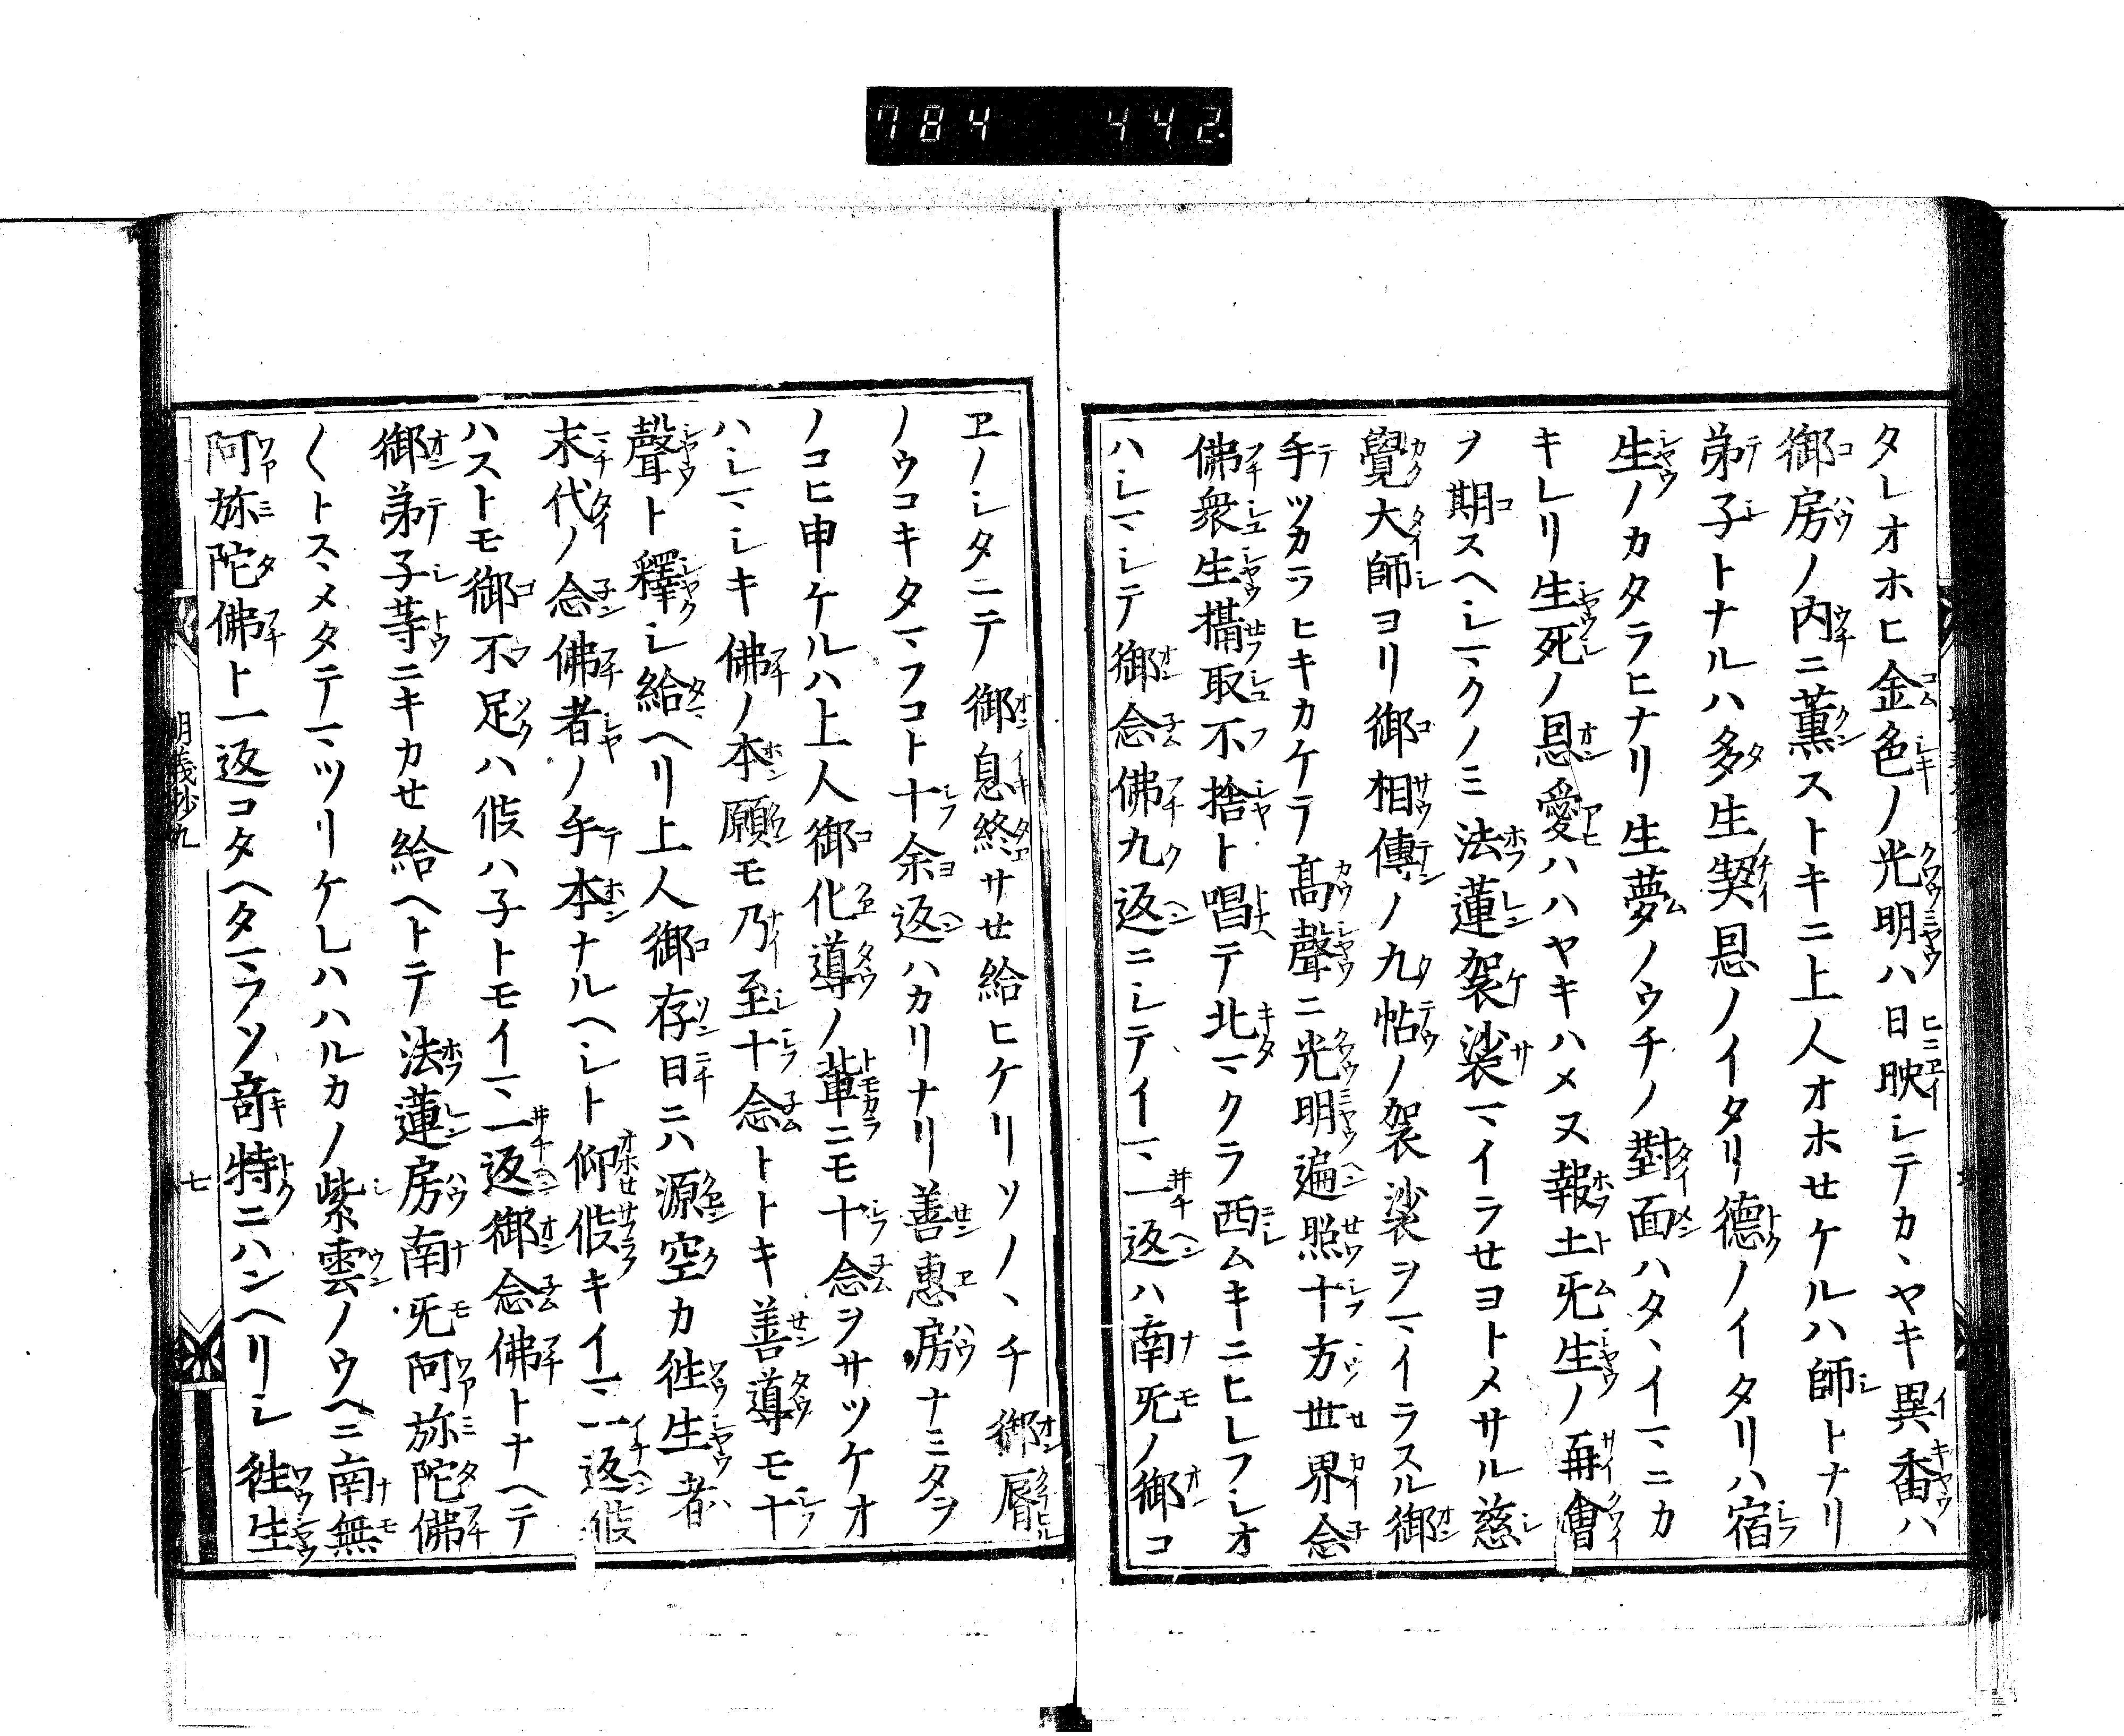 784 442
タレオホヒ金色ノ光明ハ日映シテカヽヤキ異香ハ
御房ノ内ニ薫ストキニ上人オホせケルハ師トナリ
弟子トナルハ多生ノ契恩ノイタリ徳ノイタリハ宿
生ノカタラヒナリ生夢ノウチノ對面ハタヽイマニカ
キレリ生死ノ恩愛ハハヤキハメヌ報土无生ノ再會
ヲ期スヘシマクノミ法蓮袈裟マイラせヨトメサル慈
覺大師ヨリ御相傳ノ九帖ノ袈裟ヲマイラスル御
手ツカラヒキカケテ高聲ニ光明遍照十方世界念
佛衆生攝取不捨ト唱テ北マクラ西ムキニヒレフシオ
ハシマシテ御念佛九返ニシテイマ一返ハ南无ノ御コ
ヱノシタニテ御息終サせ給ヒケリソノヽチ御脣
ノウコキタマフコト十余返ハカリナリ善惠房ナミタヲ
ノコヒ申ケルハ上人御化導ノ輩ニモ十念ヲサツケオ
ハシマシキ佛ノ本願モ乃至十念トトキ善導モ十
聲ト釋シ給ヘリ上人御存日ニハ源空カ徃生者
末代ノ念佛者ノ手本ナルヘシト仰候キイマ一返候
ハストモ御不足ハ候ハ子トモイマ一返御念佛トナヘテ
御弟子等ニキカせ給ヘトテ法蓮房南无阿弥陀佛
〱トスヽメタテマツリケレハハルカノ紫雲ノウヘニ南無
阿弥陀佛ト一返コタヘタマフソ竒特ニハンヘリシ徃生
明義抄九
七